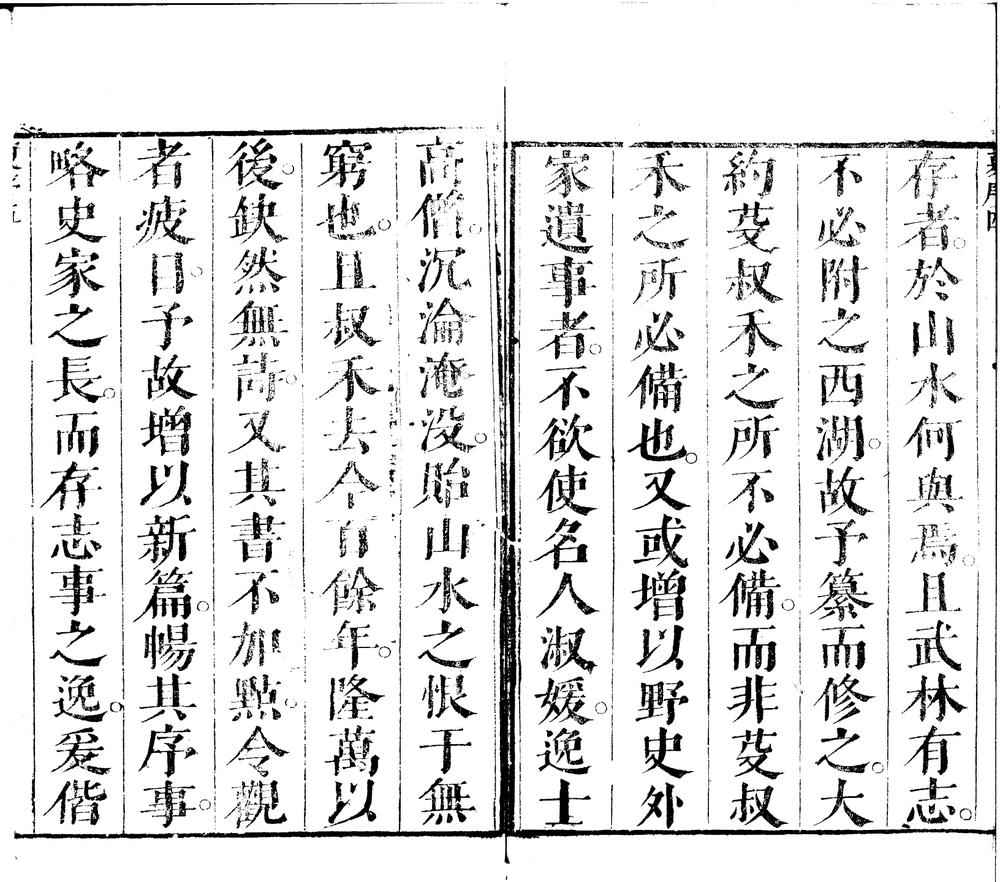 存者。於山水何與焉。且武林有志。
不必附之西湖。故予纂而修之。大
約芟叔禾之所不必備。而非芟叔
禾之所必備也。又或增以野史外
家遺事者。不欲使名人淑媛。逸士
高僧。沉淪淹没。貽山水之恨于無
窮也。且叔禾去今百餘年。隆萬以
後。缺然無諸。又其書不加點。令觀
者疲目。予故增以新篇。暢其序事。
略史家之長。而存志事之逸。爰偕